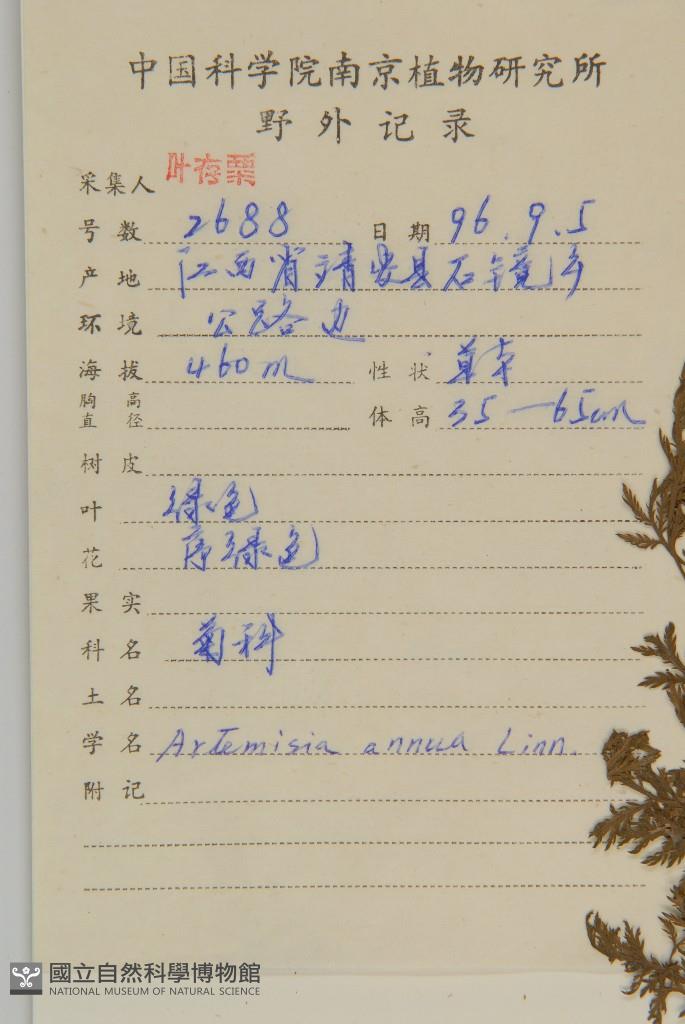 中国科学院南京植物研究所
野外记录
采集人 叶存粟
号数 2688 日期 96.9.5
产地 江西省靖安县石镜乡
环境 公路边
海拔 460m 性状 草本
胸高直径 体高 35—65cm
树皮
叶 绿色
花 序绿色
果实
科名 菊科
土名
学名 Artemisia annua Linn.
附记
國立自然科學博物館
NATIONAL MUSEUM OF NATURAL SCIENCE